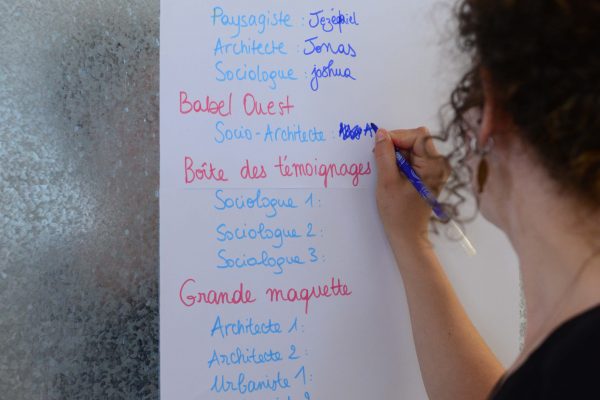 Paysagiste : Jézékiel
Architecte : Jonas
Sociologue : joshua
Babel Ouest
Socio-Architecte : A
Boîte des témoignages
Sociologue 1 :
Sociologue 2 :
Sociologue 3 :
Grande maquette
Architecte 1 :
Architecte 2 :
Urbaniste 1 :